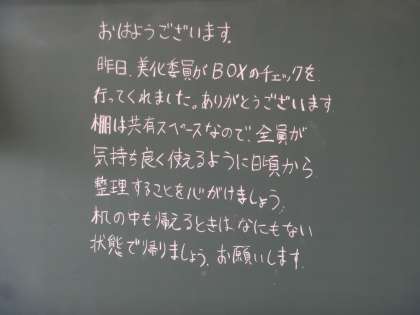 おはようございます。
昨日、美化委員がBOXのチェックを
行ってくれました。ありがとうございます
棚は共有スペースなので、全員が
気持ち良く使えるように日頃から
整理することを心がけましょう。
机の中も帰るときはなにもない
状態で帰りましょう。お願いします。